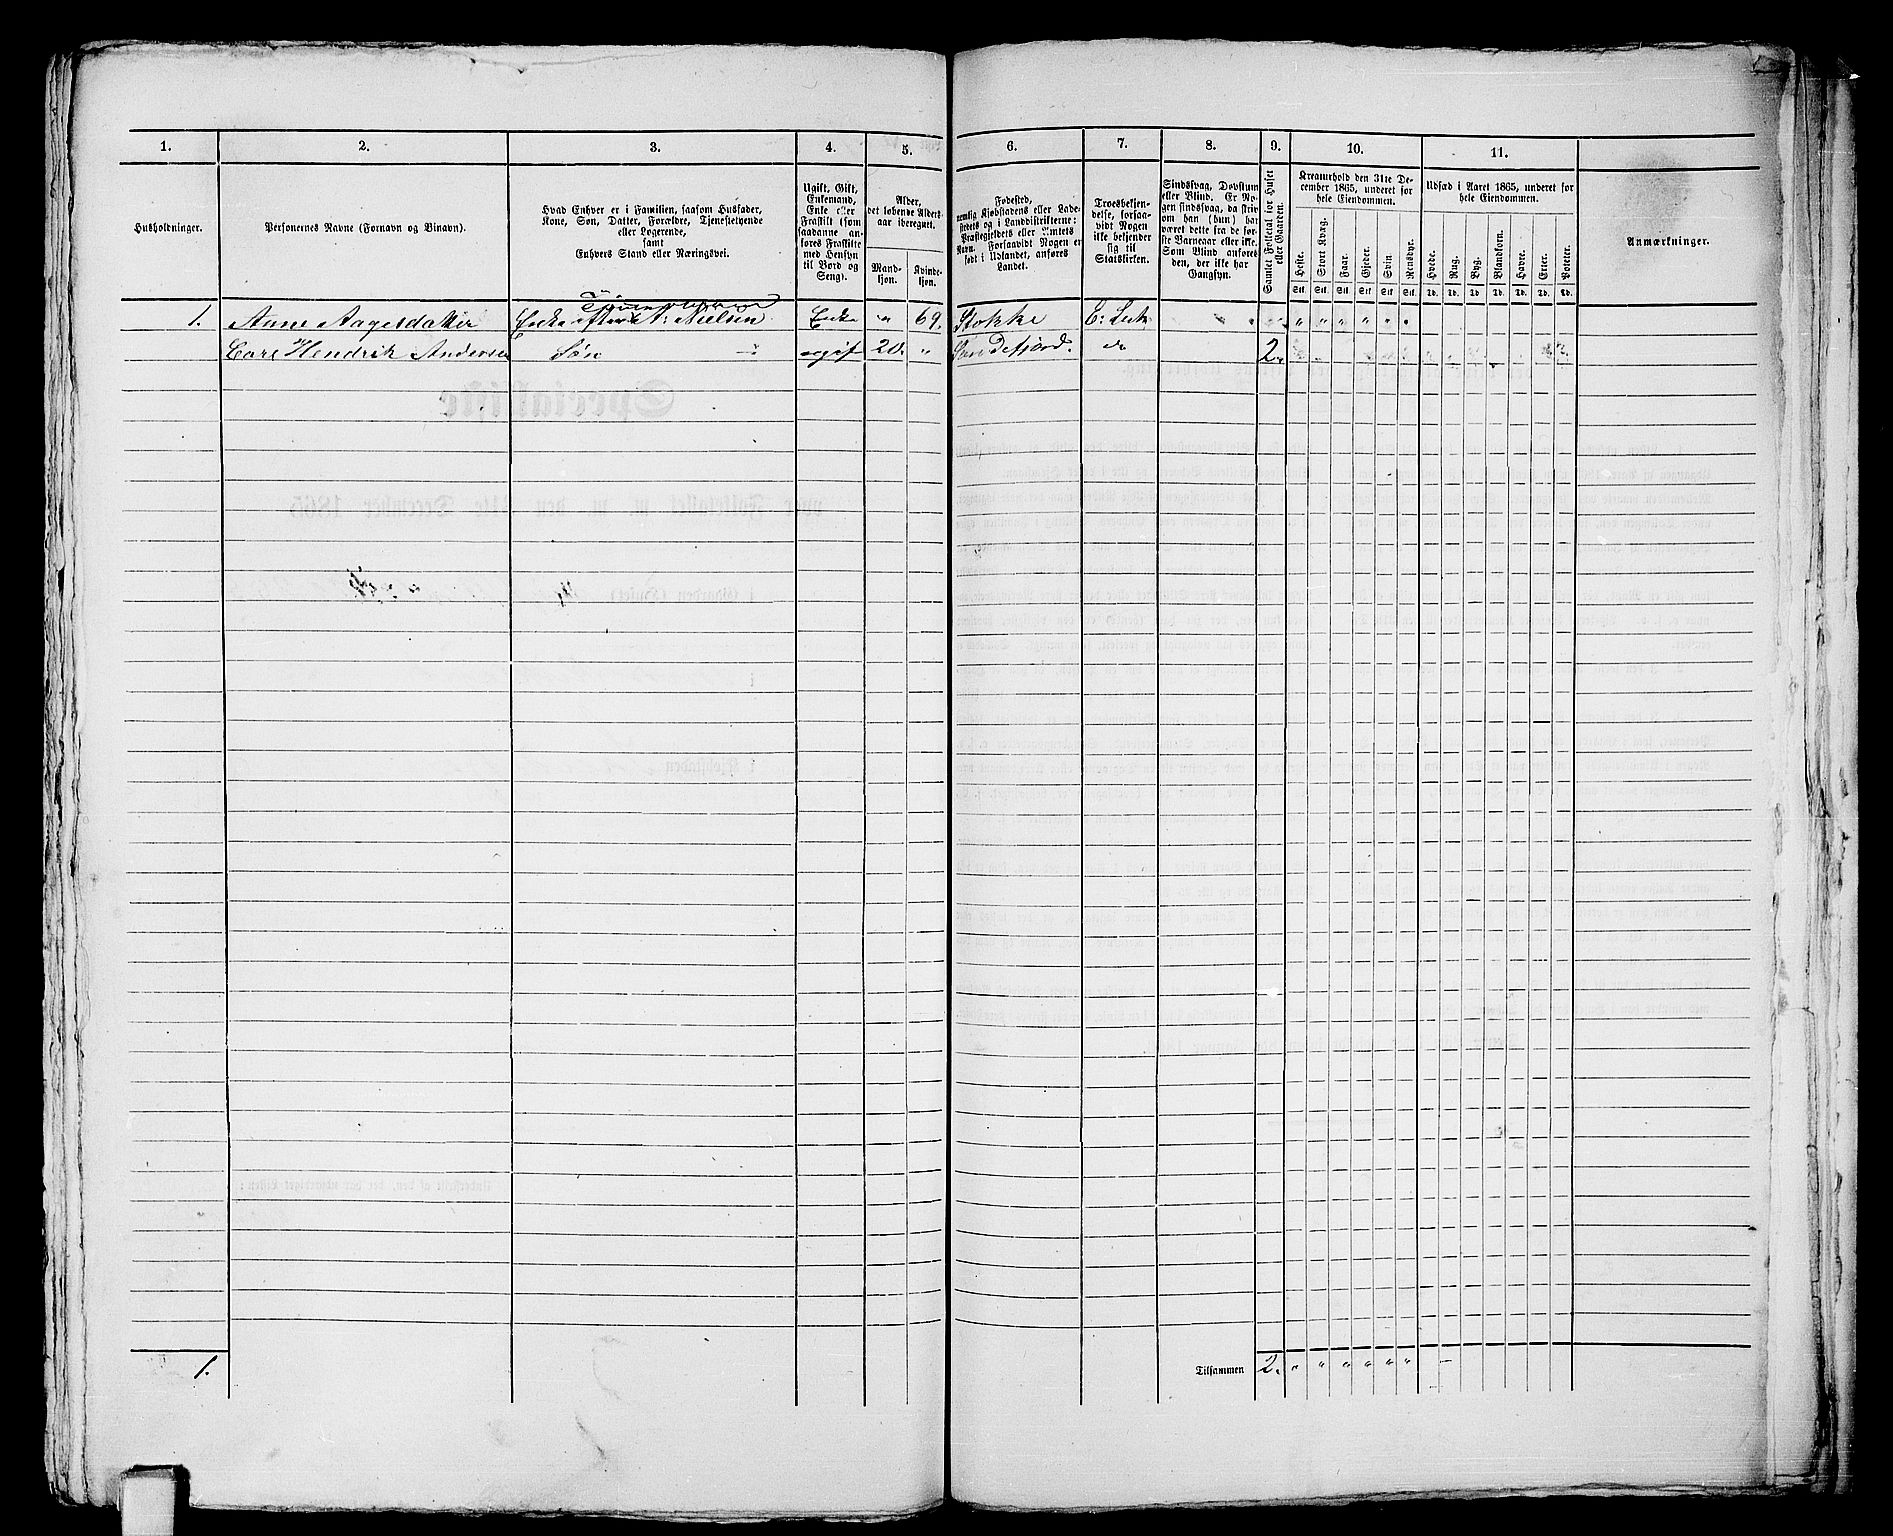 1. 2. 3. 4. 5. 6. 7. 8. 9. 10. 11.
Husholdninger.
Personernes Navne (Fornavn og Binavn).
Hvad Enhver er i Familien, saasom Husfader,
Kone, Søn, Datter, Forældre, Tjenestetyende
eller Logerende,
samt
Enhvers Stand eller Næringsvei.
Ugift, Gift,
Enkemand,
Enke eller
Fraskilt (som
saadanne an-
føres Fraskilte
med Hensyn
til Bord og
Seng).
Alder,
det løbende Alders-
aar iberegnet.
Mand-
kjøn.
Kvinde-
kjøn.
Fødested,
nemlig Kjøbstadens eller Lade-
stedets og i Landdistrikterne:
Præstegjeldets eller Amtets
Navn. Forsaavidt Nogen er
født i Udlandet, anføres
Landet.
Troesbekjen-
delse, forsaa-
vidt Nogen
ikke bekjender
sig til
Statskirken.
Sindssvag, Døvstum
eller Blind. Er No-
gen sindssvag, da skriv
om han (hun) har
været dette fra de før-
ste Barneaar eller ikke.
Som Blind anføres
den, der ikke har
Gangsyn.
Samlet Folketal for Huset
eller Gaarden.
Kreaturhold den 31te De-
cember 1865, underet for
hele Eiendommen.
Heste. Stort Kvæg. Faar. Gjeder. Svin. Rensdyr.
Stk. Stk. Stk. Stk. Stk. Stk.
Udsæd i Aaret 1865, underet for
hele Eiendommen.
Hvede. Rug. Byg. Blandkorn. Havre. Erter. Poteter.
Td. Td. Td. Td. Td. Td. Td.
Anmærkninger.
1. Anne Aagesdatter Enke efter A: Nielsen Enke " 69. Stokke E: Luth
Carl Hendrik Andersen Søn ugift 20. " Sandefjord. do 2.
1. Tilsammen 2. " " " " " " –